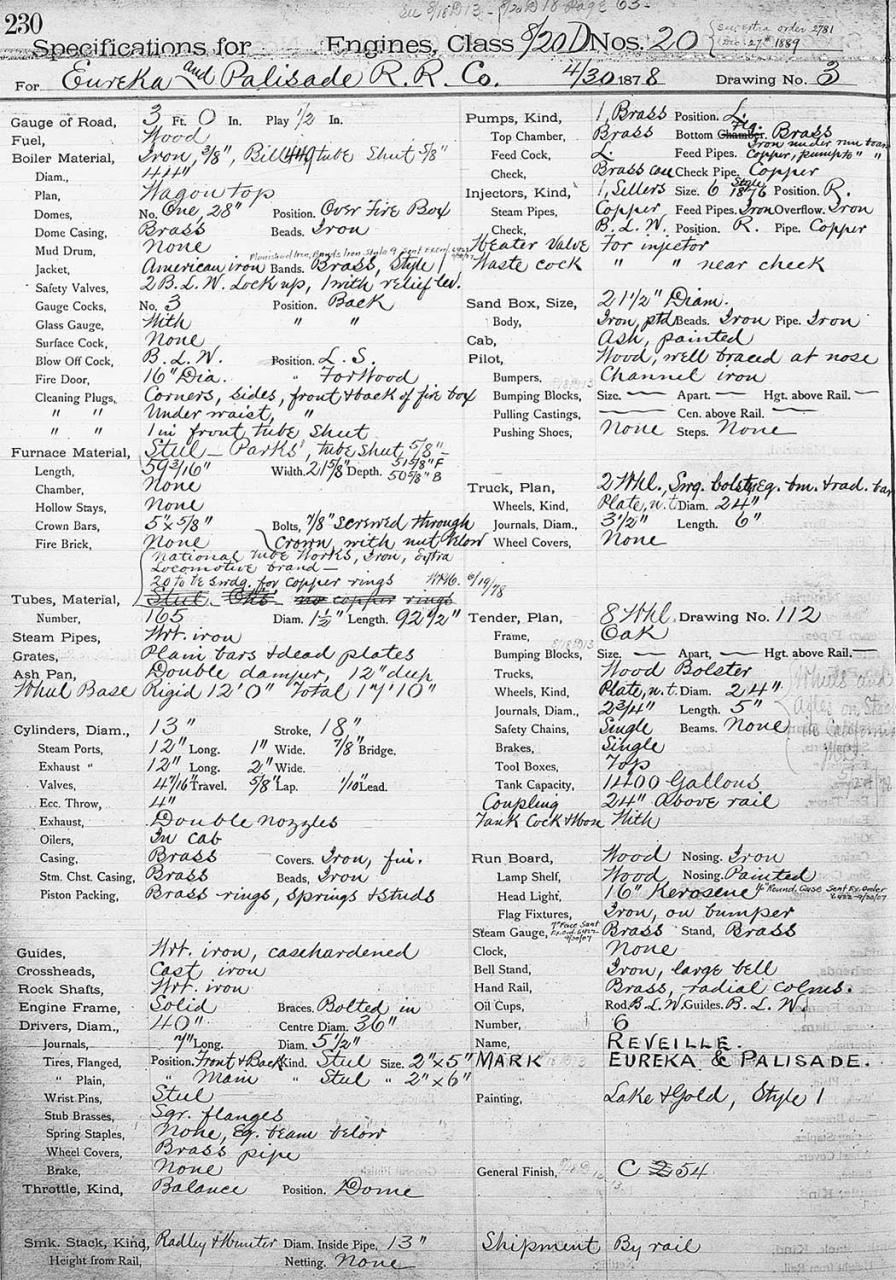 230
See 8/18 D 13 - 8/20 D 18 Page 63-
Specifications for Engines, Class 8/20 D Nos. 20 { See extra order 2781 Dec. 27th 1889
For Eureka and Palisade R. R. Co. 4/30 1878 Drawing No. 3
Gauge of Road, 3 Ft. 0 In. Play 1/2 In.
Fuel, Wood
Boiler Material, Iron, 3/8", tube Sheet 5/8"
Diam., 44"
Plan, Wagon top
Domes, No. One, 28" Position. Over Fire Box
Dome Casing, Brass Beads. Iron
Mud Drum, None
Jacket, American iron Bands. Brass, Style 1
Safety Valves, 2 B. L. W. Lock up, 1 with relief lev.
Gauge Cocks, No. 3 Position. Back
Glass Gauge, With " "
Surface Cock, None
Blow Off Cock, B. L. W. Position. L. S.
Fire Door, 16" Dia. " For Wood
Cleaning Plugs, Corners, sides, front & back of fire box
" " Under waist, "
" " 1 in front tube Sheet
Furnace Material, Steel - Parks', tube Sheet 5/8"
Length, 59 3/16" Width. 21 5/8" Depth. 51 5/8" F 50 5/8" B
Chamber, None
Hollow Stays, None
Crown Bars, 5" x 5/8" Bolts, 7/8" screwed through
Fire Brick, None Crown, with nut below
National Tube Works, Iron, Extra
Locomotive brand -
20 to be swdg. for Copper rings 6/19/78
Tubes, Material, Steel. Otis no copper rings
Number, 165 Diam. 1 1/2" Length. 92 1/2"
Steam Pipes, Wrt. iron
Grates, Plain bars & dead plates
Ash Pan, Double damper, 12" deep
Wheel Base Rigid 12' 0" Total 17' 10"
Cylinders, Diam., 13" Stroke, 18"
Steam Ports, 12" Long. 1" Wide. 7/8" Bridge.
Exhaust " 12" Long. 2" Wide.
Valves, 4 7/16" Travel. 5/8" Lap. 1/10" Lead.
Ecc. Throw, 4"
Exhaust, Double nozzles
Oilers, In cab
Casing, Brass Covers. Iron, fin.
Stm. Chst. Casing, Brass Beads, Iron
Piston Packing, Brass rings, springs & studs
Guides, Wrt. iron, casehardened
Crossheads, Cast iron
Rock Shafts, Wrt. iron
Engine Frame, Solid Braces. Bolted in
Drivers, Diam., 40" Centre Diam. 36"
Journals, 7" Long. Diam. 5 1/2"
Tires, Flanged, Position. Front & Back Kind. Steel Size. 2" x 5"
" Plain, " Main " Steel " 2" x 6"
Wrist Pins, Steel
Stub Brasses, Sqr. flanges
Spring Staples, None, Eq. beam below
Wheel Covers, Brass pipe
Brake, None
Throttle, Kind, Balance Position. Dome
Smk. Stack, Kind, Radley & Hunter Diam. Inside Pipe, 13"
Height from Rail, Netting. None
Pumps, Kind, 1, Brass Position. L.
Top Chamber, Brass Bottom Chamber. Fig. Brass
Feed Cock, L. Feed Pipes. Iron under run board Copper, pump to " "
Check, Brass case Check Pipe. Copper
Injectors, Kind, 1, Sellers Size. 6 Style 1876 Position. R.
Steam Pipes, Copper Feed Pipes. Iron Overflow. Iron
Check, B. L. W. Position. R. Pipe. Copper
Heater Valve For injector
Waste cock " " near check
Sand Box, Size, 21 1/2" Diam.
Body, Iron, ptd Beads. Iron Pipe. Iron
Cab, Ash, painted
Pilot, Wood, well braced at nose
Bumpers, Channel iron
Bumping Blocks, Size. — Apart. — Hgt. above Rail. —
Pulling Castings, — Cen. above Rail. —
Pushing Shoes, None Steps. None
Truck, Plan, 2 Whl., Swg. bolster, Eq. bm. & rad. bar
Wheels, Kind, Plate, n.t. Diam. 24"
Journals, Diam., 3 1/2" Length. 6"
Wheel Covers, None
Tender, Plan, 8 Whl. Drawing No. 112
Frame, Oak
Bumping Blocks, Size. — Apart, — Hgt. above Rail. —
Trucks, Wood Bolster
Wheels, Kind, Plate, n.t. Diam. 24"
Journals, Diam., 2 3/4" Length. 5"
Safety Chains, Single Beams. None
Brakes, Single
Tool Boxes, Top
Tank Capacity, 1400 Gallons
Coupling 24" above rail
Tank Cock & Hose With
Run Board, Wood Nosing. Iron
Lamp Shelf, Wood Nosing. Painted
Head Light, 16" Kerosene
Flag Fixtures, Iron, on bumper
Steam Gauge, Brass Stand, Brass
Clock, None
Bell Stand, Iron, large bell
Hand Rail, Brass, radial colms.
Oil Cups, Rod. B. L. W. Guides. B. L. W.
Number, 6
Name, REVEILLE.
MARK EUREKA & PALISADE.
Painting, Lake & Gold, Style 1
General Finish, C 54
Shipment By rail